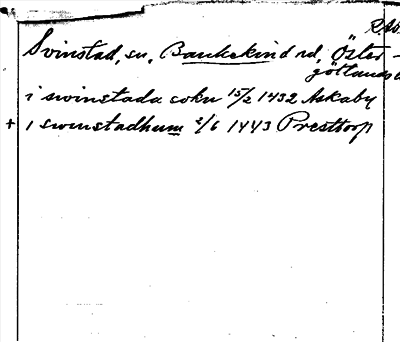 Svinstad, sn, Bankekind rd, Öster-
götlands
i swinstada sokn 15/2 1432 Askaby
+ i swinstadhum 2/6 1443 Presttorp